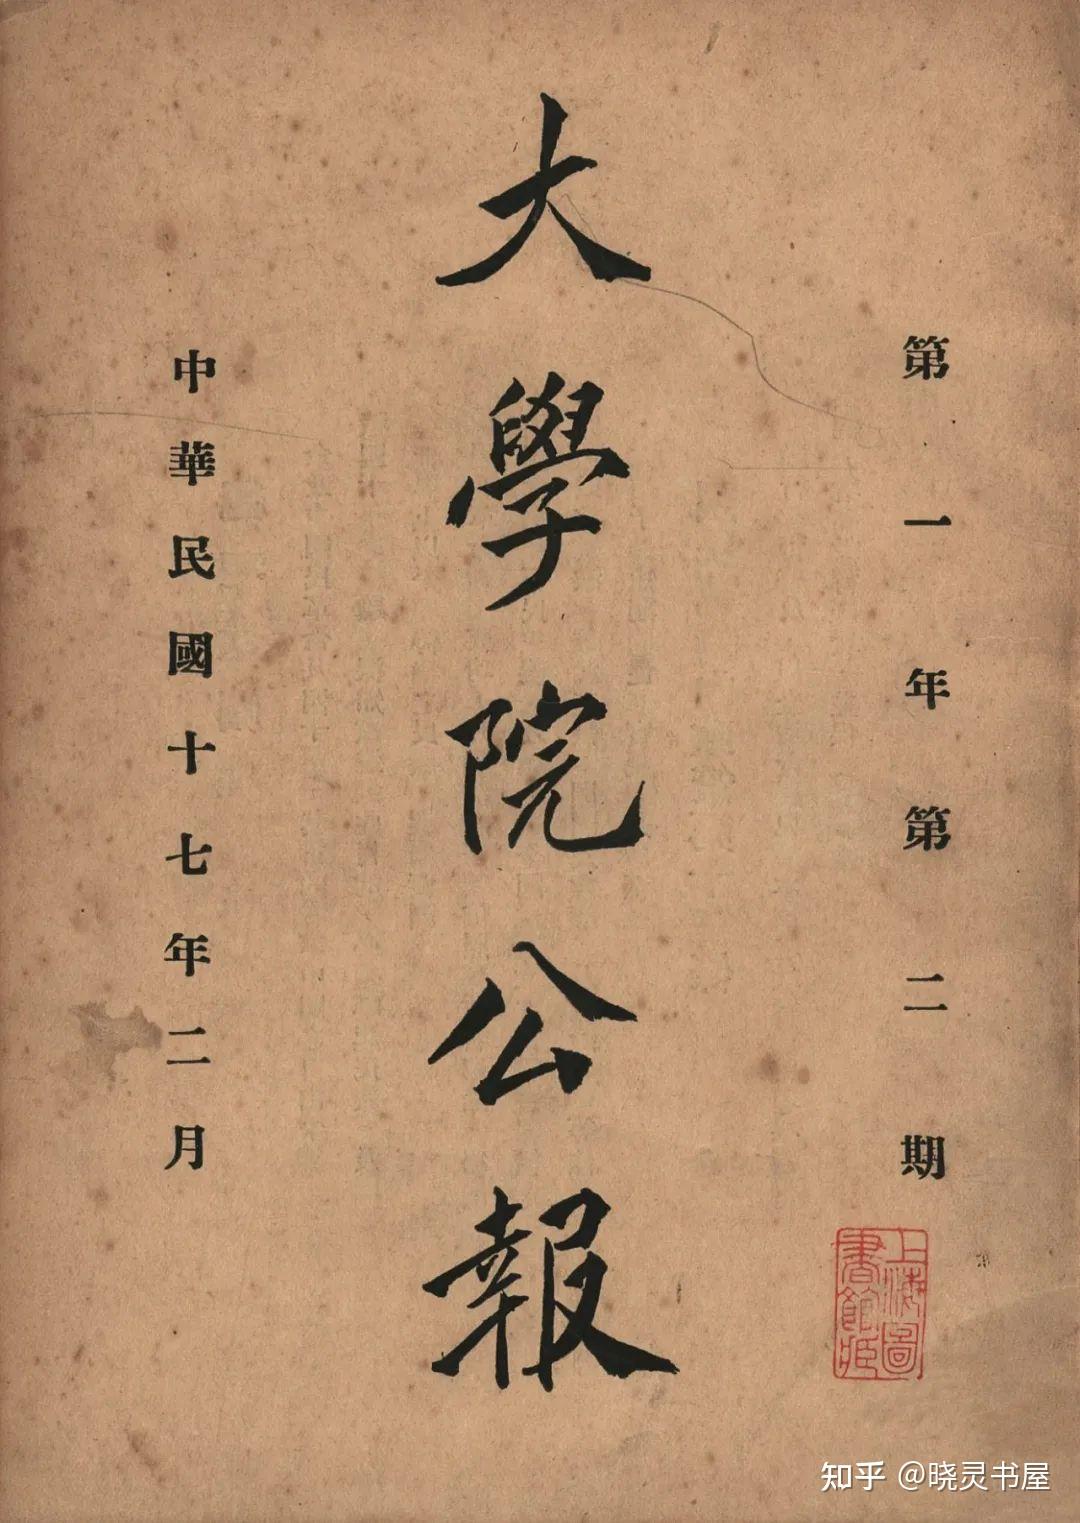 第一年第二期
大學院公報
中華民國十七年二月
上海圖書館藏
知乎 @晓灵书屋